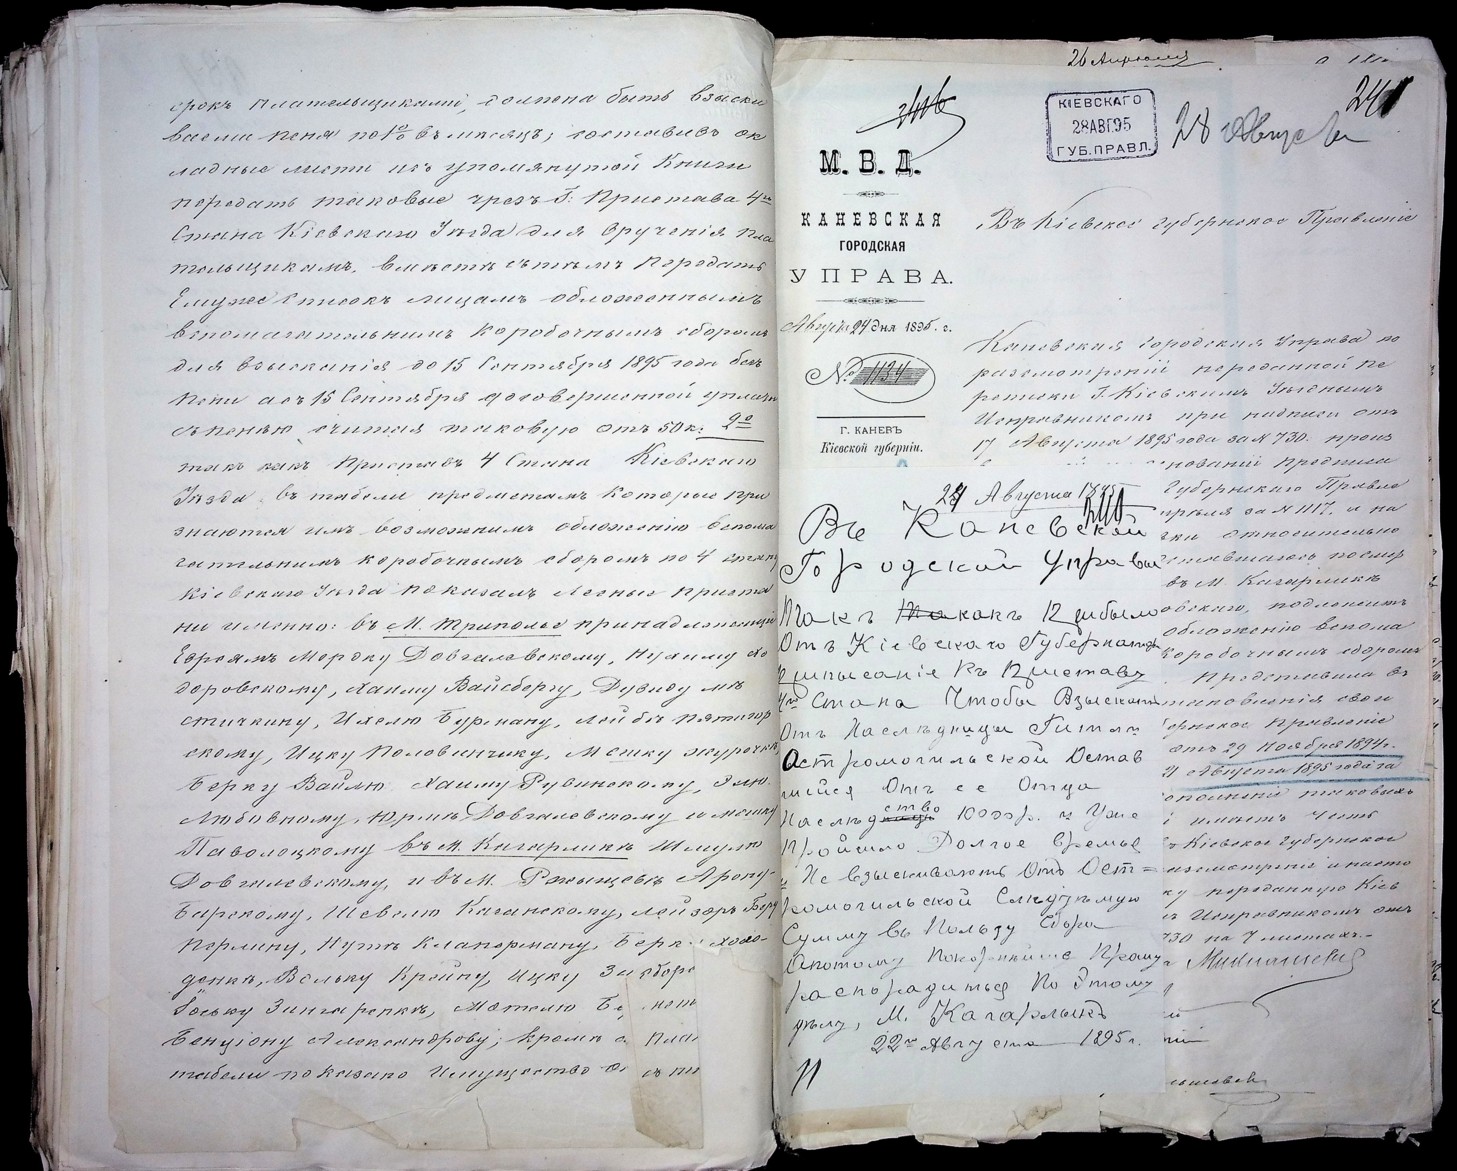 срокъ плательщиками, должна быть взыски
ваема пеня по 1% въ мѣсяцъ; составивъ ок
ладные листы изъ упомянутой книги
передать таковые чрезъ Г. Пристава 4го
Стана Кіевскаго Уѣзда для врученія пла
тельщикамъ, вмѣстѣ съ тѣмъ передать
Ему же списокъ лицамъ обложеннымъ
вспомагательнымъ коробочнымъ сборомъ
для взысканія до 15 Сентября 1895 года безъ
пени а съ 15 Сентября
съ пенею считая таковую отъ 50 к. 2е
такъ какъ Приставъ 4 Стана Кіевскаго
Уѣзда въ табели предметамъ которые при
знаются имъ возможнымъ обложенію вспома
гательнымъ коробочнымъ сборомъ по 4 стану
Кіевскаго Уѣзда показалъ Лесные приста
ни именно: въ М. Триполье принадлежащія
Евреямъ Мордку Довгалевскому, Нухиму Хо
доровскому, Хаиму Вайсбергу, Дувиду
Ихелю Бурману, Лейбѣ Пятигор
скому, Ицку Половинчику, Мошку
Берку Вайлю Хаиму Рувинскому, Элю
Любовному, Юрмѣ Довгалевскому и Мошку
Паволоцкому въ М. Кагарликѣ Шмулю
Довгалевскому, и въ М. Ржыщевѣ Арону
Барскому, Шевелю Каганскому, Лейзоръ Беру
Перлину, Нутѣ Клаперману, Берк Холо-
денкѣ, Вольку Крайну, Ицку За сборо
Іоську Зингеренкѣ, Мотелю Бе
Бенціону Александрову; кромѣ пла
табели показано имущество съ пе
26 Апрѣля
241
КІЕВСКАГО
28 АВГ. 95
ГУБ. ПРАВЛ.
28 Августа
М. В. Д.
КАНЕВСКАЯ
ГОРОДСКАЯ
УПРАВА.
Августа 24 дня 1895 г.
№ 1134
Г. КАНЕВЪ
Кіевской губерніи.
Въ Кіевское Губернское Правленіе
Каневская Городская Управа по
разсмотрѣніи переданной пе
реписки Г. Кіевскимъ Уѣзднымъ
Исправникомъ при надписи отъ
17 Августа 1895 года за № 730. произ
основаніи предпиш
Губернскаго Правле
прѣля за № 1117. и на
относительно
въ М. Кагарликѣ
овскаго, подлежитъ
обложенію вспома
коробочнымъ сборомъ
Представила въ
тановленія свои
ернское Правленіе
отъ 29 Ноября 1894 г.
21 Августа 1895 года за
ополненіе таковыхъ
имѣетъ честь
ъ Кіевское Губернское
азсмотрѣніе и насто
ку переданную Кіев
ъ Исправникомъ отъ
730 на 7 листахъ.-
24 Августа 1895
Въ Каневской
Городской Управы
Такъ какъ Прибыло
Отъ Кіевскаго Губернатор
Предписаніе Къ Приставу
4го Стана Чтобы Взыскать
Отъ Наслѣдницы Гитли
Остромогильской Остав
шійся Отъ ее Отца
Наслѣдство 1000 р. и Уже
Пройшло Долгое Время
и Не взыскиваютъ Отъ Ост=
ромогильской Слѣдуемую
Сумму въ Пользу сбора
А потому Покорнѣйше Прошу
распорадиться По Этому
дѣлу, М. Кагарлыкъ
22го Августа 1895 г.
11